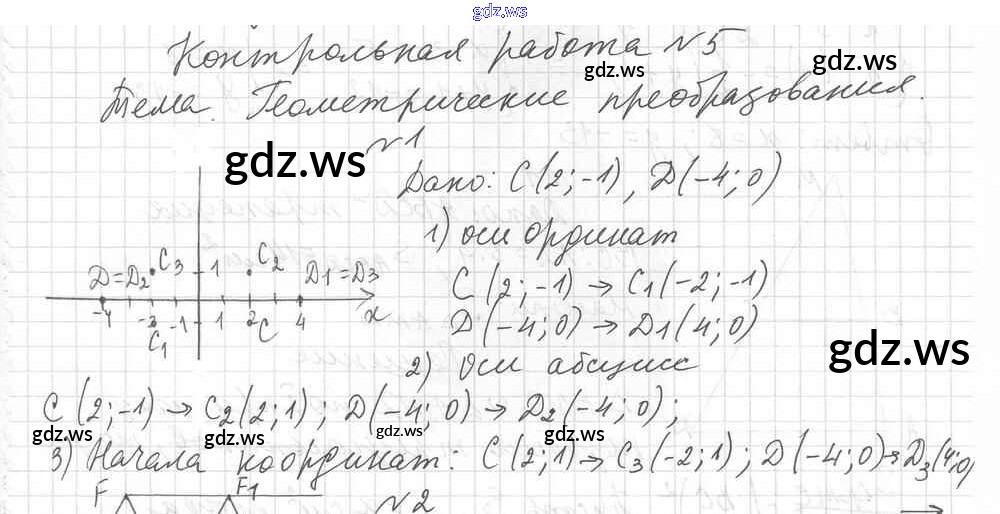 gdz.ws
Контрольная работа №5
gdz.ws
gdz.ws
Тема. Геометрические преобразования.
№1
gdz.ws
Дано: C(2;-1), D(-4;0)
1) оси ординат
C3 1 C2
D=D2 D1=D3
C(2;-1) → C1(-2;-1)
-4 -2 -1 1 2 C 4 x
C1
D(-4;0) → D1(4;0)
gdz.ws
2) Оси абсцисс
C(2;-1) → C2(2;1); D(-4;0) → D2(-4;0);
gdz.ws gdz.ws gdz.ws gdz.ws
3) Начала координат: C(2;1) → C3(-2;1); D(-4;0) → D3(4;0)
gdz.ws gdz.ws
F F1
№2